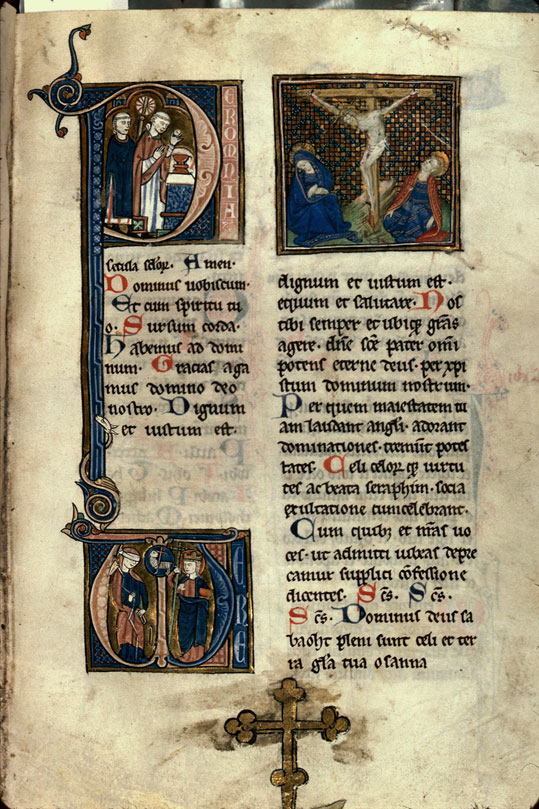 P
EROMNIA
secula sclor̄. Amen.
Dominus uobiscum.
Et cum spiritu tu
o. Sursum corda.
Habemus ad domi
num. Gracias aga
mus domino deo
nostro. Dignum
et iustum est.
U
ERE
dignum et iustum est.
equum et salutare. Nos
tibi semper et ubiqȝ gr̄as
agere. dn̄e sc̄e pater om̄i
potens eterne deus. per xp̄i
stum dominum nostrum.
Per quem maiestatem tu
am laudant angl̄i. adorant
dominationes. tremūt potes
tates. Celi celor̄ qȝ uirtu
tes ac beata seraphim. socia
exultatione concelebrant.
Cum quibȝ et n̄r̄as uo
ces. ut admitti iubeas depre
camur supplici cōfessione
dicentes. Sc̄s. Sc̄s.
Sc̄s. Dominus deus sa
baoht pleni sunt celi et ter
ra gl̄a tua osanna